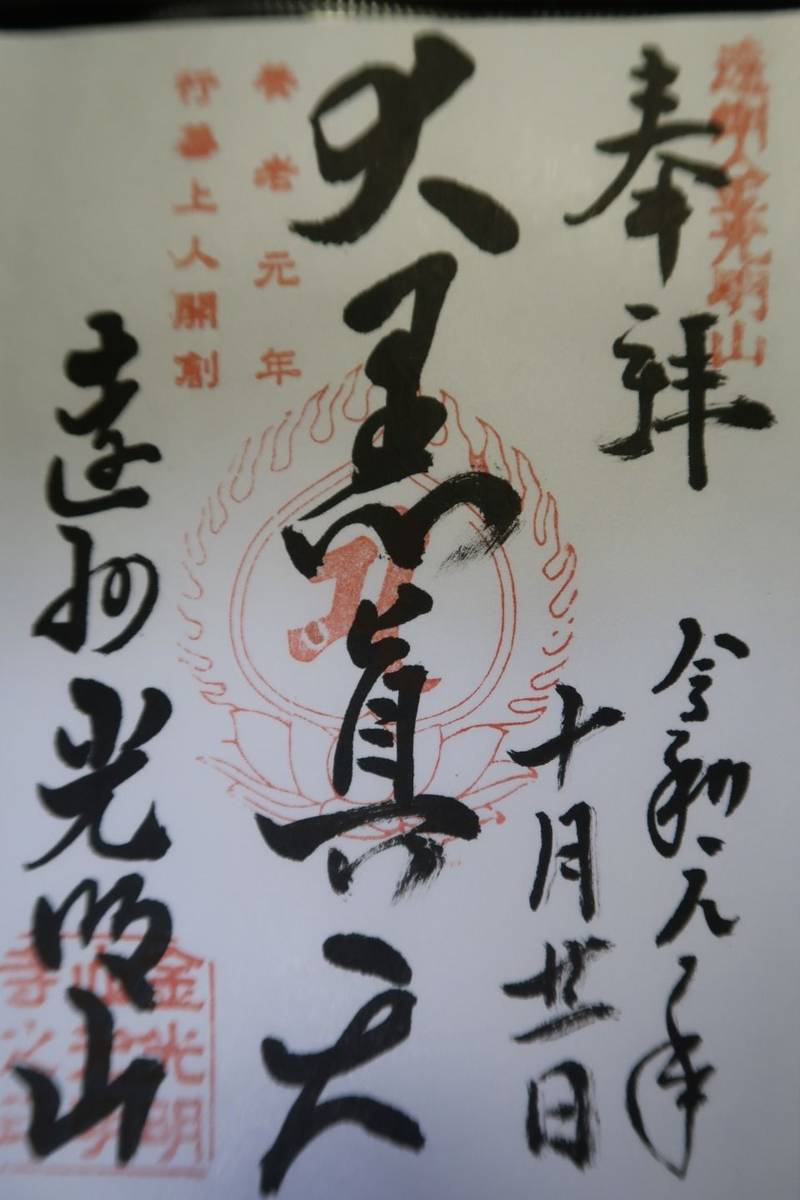 遠州金光明山
奉拝
令和元年
十月廿二日
大黒眞天
養老元年
行基上人開創
遠州光明山
金光明
寺之印